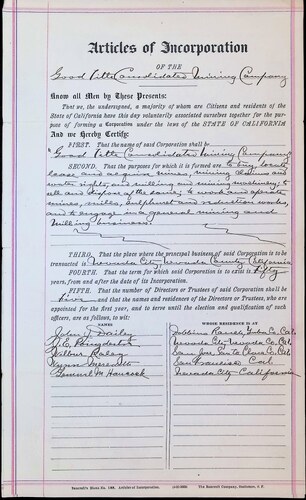 Articles of Incorporation
OF THE
Good Title Consolidated Mining Company
Know all Men by These Presents:
That we, the undersigned, a majority of whom are Citizens and residents of the
State of California have this day voluntarily associated ourselves together for the pur-
pose of forming a Corporation under the laws of the STATE OF CALIFORNIA
And we Hereby Certify:
FIRST. That the name of said Corporation shall be
"Good Title Consolidated Mining Company"
SECOND. That the purposes for which it is formed are to buy, locate
lease and acquire mines, mining claims and
water rights, and milling and mining machinery; to
sell and dispose of the same; to work and operate
mines, mills, sulphuret and reduction works,
and to engage in a general mining and
milling business.
THIRD. That the place where the principal business of said Corporation is to be
transacted is Nevada City, Nevada County, California
FOURTH. That the term for which said Corporation is to exist is fifty
years, from and after the date of its Incorporation.
FIFTH. That the number of Directors or Trustees of said Corporation shall be
five and that the names and residences of the Directors or Trustees, who are
appointed for the first year, and to serve until the election and qualification of such
officers, are as follows, to wit:
NAMES WHOSE RESIDENCE IS AT
John J. Dailey Dobbins Ranch, Yuba Co. Cal.
Nevada City, Nevada Co. Cal.
Wilbur San Jose, Santa Clara Co. Cal
San Francisco Cal.
Samuel M. Hancock Nevada City California
Articles of Incorporation. The Bancroft Company,